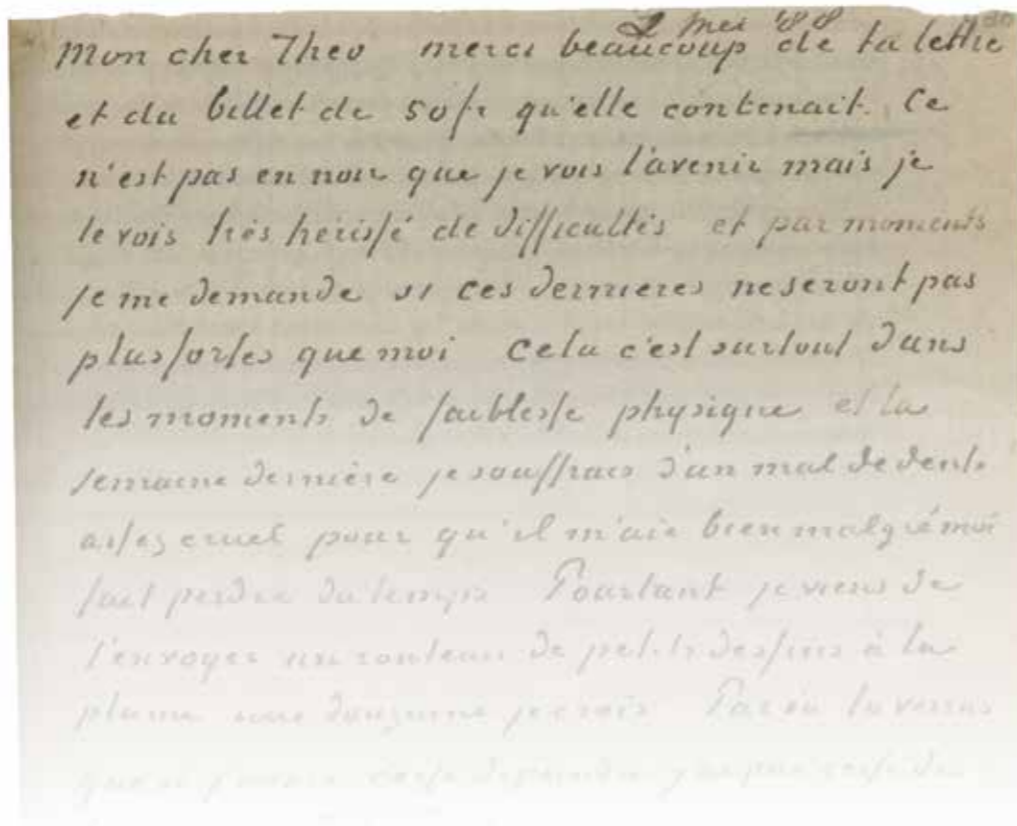 2 mei 88
Mon cher Theo merci beaucoup de ta lettre
et du billet de 50 fr qu'elle contenait. Ce
n'est pas en noir que je vois l'avenir mais je
le vois très hérissé de difficultés et par moments
je me demande si ces dernieres ne seront pas
plus fortes que moi Cela c'est surtout dans
les moments de faiblesse physique et la
semaine dernière je souffrais d'un mal de dents
assez cruel pour qu'il m'aie bien malgré moi
fait perdre du temps Pourtant je viens de
t'envoyer un rouleau de petits dessins à la
plume une douzaine je crois Par là tu verras
que si j'avais cessé de peindre je n'ai pas cessé de